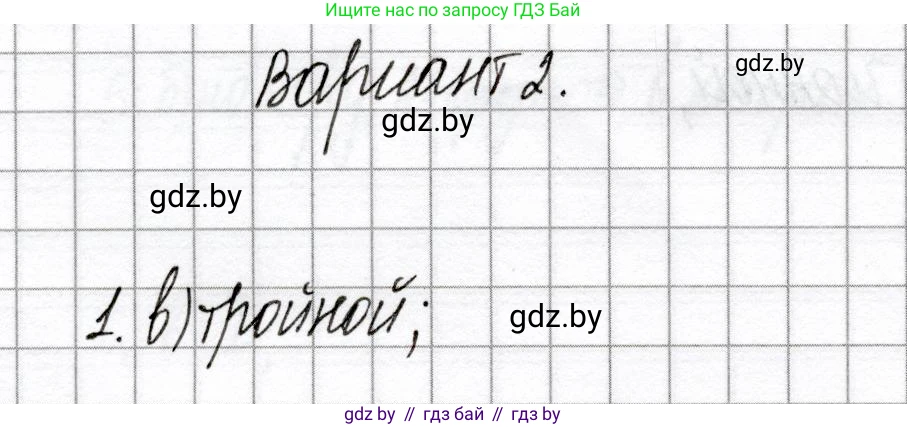 Ищите нас по запросу ГДЗ Бай
gdz.by
Вариант 2.
gdz.by
gdz.by
1. в) тройной;
gdz.by
gdz by // гдз бай // гдз by